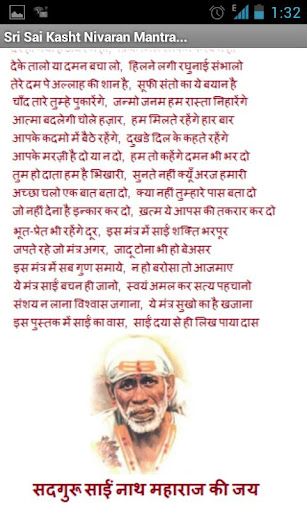 1:32
Sri Sai Kasht Nivaran Mantra...
देके तालो या दमन बचा लो, हिलने लगी रघुनाई संभालो
तेरे दम पे अल्लाह की शान है, सूफी संतो का ये बयान है
चाँद तारे तुम्हे पुकारेंगे, जन्मो जनम हम रास्ता निहारेंगे
आत्मा बदलेगी चोले हज़ार, हम मिलते रहेंगे हार बार
आपके कदमो में बैठे रहेंगे, दुखडे दिल के कहते रहेंगे
आपके मरज़ी है दो या न दो, हम तो कहेंगे दमन भी भर दो
तुम हो दाता हम है भिखारी, सुनते नहीं क्यूँ अरज हमारी
अच्छा चलो एक बात बता दो, क्या नहीं तुम्हारे पास बता दो
जो नहीं देना है इन्कार कर दो, ख़त्म ये आपस की तकरार कर दो
भूत-प्रेत भी रहेंगे दूर, इस मंत्र में साईं शक्ति भरपूर
जपते रहे जो मंत्र अगर, जादू टोना भी हो बेअसर
इस मंत्र में सब गुण समाये, न हो बरोसा तो आजमाए
ये मंत्र साईं बचन ही जानो, स्वयं अमल कर सत्य पहचानो
संशय न लाना विश्वास जगाना, ये मंत्र सुखो का है खजाना
इस पुस्तक में साईं का वास, साईं दया से ही लिख पाया दास
सदगुरू साईं नाथ महाराज की जय